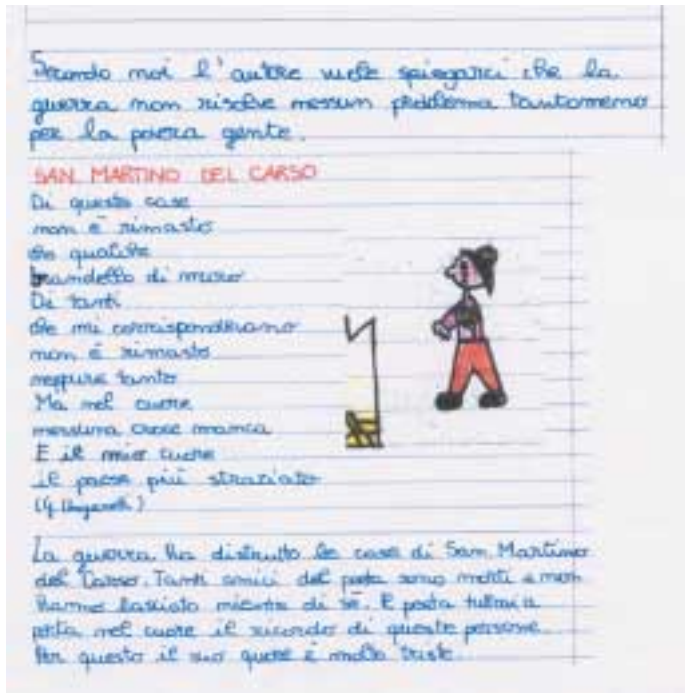 Secondo noi l'autore vuole spiegarci che la
guerra non risolve nessun problema tantomeno
per la povera gente.
SAN MARTINO DEL CARSO
Di queste case
non è rimasto
che qualche
brandello di muro
Di tanti
che mi corrispondevano
non è rimasto
neppure tanto
Ma nel cuore
nessuna croce manca
È il mio cuore
il paese più straziato
(G. Ungaretti)
La guerra ha distrutto le case di San Martino
del Carso. Tanti amici del poeta sono morti e non
hanno lasciato niente di sé. Il poeta
porta nel cuore il ricordo di queste persone.
Per questo il suo cuore è molto triste.